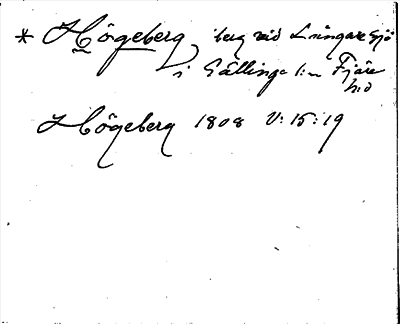 * Högeberg, berg vid Lningare sjö
i Gällinge s:n Fjäre
h:d
Högeberg 1808 V: 15: 19